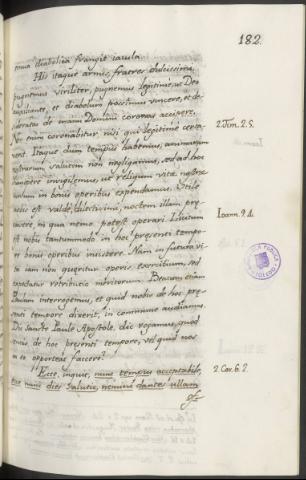 182.
tenua diabolica frangit iacula.
His itaque armis, fratres dulcissimi,
pugnemus viriliter, pugnemus legitime, ut Deo
auxiliante, et diabolum possimus vincere, et de-
sideratas de manu Domini coronas accipere.
Non enim coronabitur nisi qui legitime certa-
verit. Itaque dum tempus habemus, animarum
nostrarum salutem non negligamus, sed ad hoc
semper invigilemus, ut reliquum vitæ nostræ
in boni operis expendamus. Utile
nobis est valde, dilectissimi, noctem illam præ-
in qua nemo potest operari. Licitum
est nobis tantummodo in hoc præsenti tempo-
re boni operibus insistere. Nam in futura vi-
ta iam non quæritur operis exercitium, sed
expectatur retributio meritorum. Beatum etiam
Paulum interrogemus, et quid nobis de hoc præ-
senti tempore dixerit, in commune audiamus.
Dic Sancte Paule Apostole, dic rogamus, quid
de hoc præsenti tempore, vel quid nos
in eo oporteat facere?
Ecce, inquit, nunc tempus acceptabile,
ecce nunc dies salutis, nemini dantes ullam
2. Tim. 2. 5.
Ioann. 9. 4.
2. Cor. 6. 2.